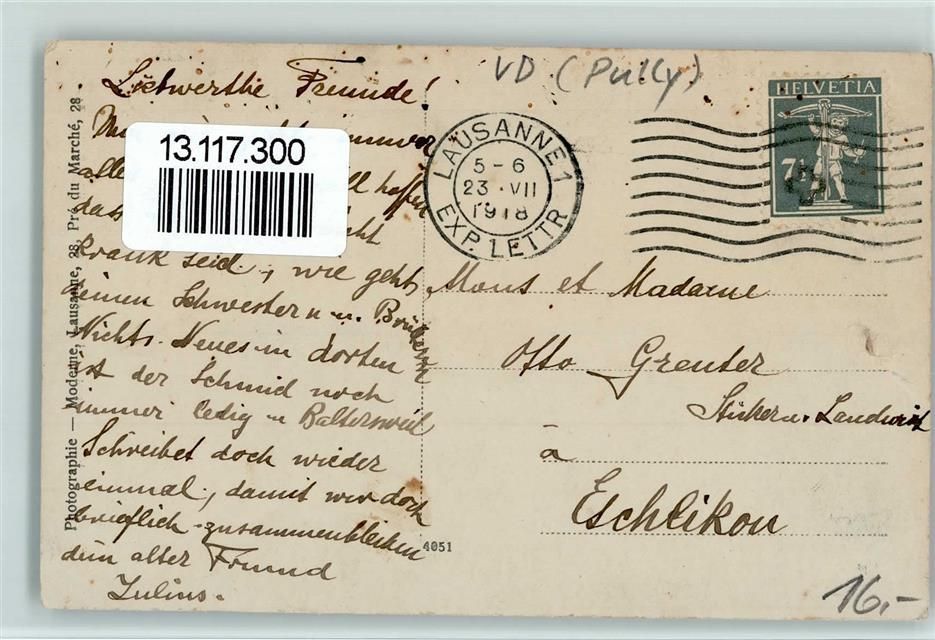 VD (Pully)
HELVETIA
7½
LAUSANNE 1
5 - 6
23 · VII
1918
EXP. LETTR
13.117.300
Photographie — Moderne, Lausanne, 28, Pré du Marché, 28
Liebwerthe Freunde!
immer
alle hoffen
dass
krank seid, wie geht
deinen Schwestern u. Brüdern
Nichts Neues in dorten
ist der Schmid noch
immer ledig u Balterswil
Schreibet doch wieder
einmal, damit wir doch
brieflich zusammenbleiben
dein alter Freund
Julius.
Mons et Madame
Otto Greuter
Sticker u. Landwirt
à
Eschlikon
4051
16.-